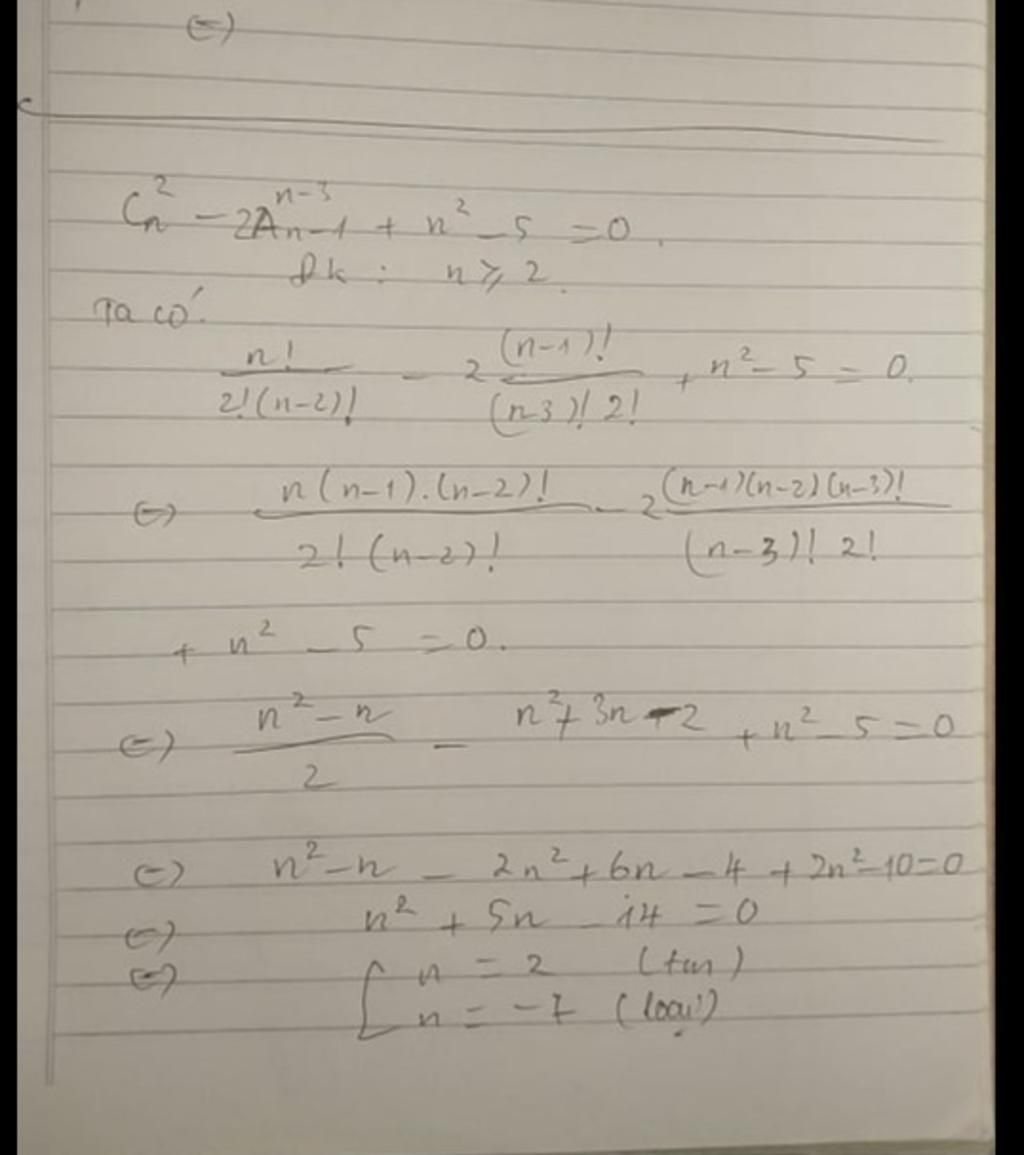 ⇔
C_n^2 - 2A_{n-1}^{n-3} + n^2 - 5 = 0.
Đk : n ≥ 2.
Ta có:
\frac{n!}{2!(n-2)!} - 2\frac{(n-1)!}{(n-3)! 2!} + n^2 - 5 = 0.
⇔ \frac{n(n-1).(n-2)!}{2!(n-2)!} - 2\frac{(n-1)(n-2)(n-3)!}{(n-3)! 2!}
+ n^2 - 5 = 0.
⇔ \frac{n^2-n}{2} - n^2 + 3n - 2 + n^2 - 5 = 0
⇔ n^2 - n - 2n^2 + 6n - 4 + 2n^2 - 10 = 0
⇔ n^2 + 5n - 14 = 0
⇔ [ n = 2 (tm)
n = -7 (loại)